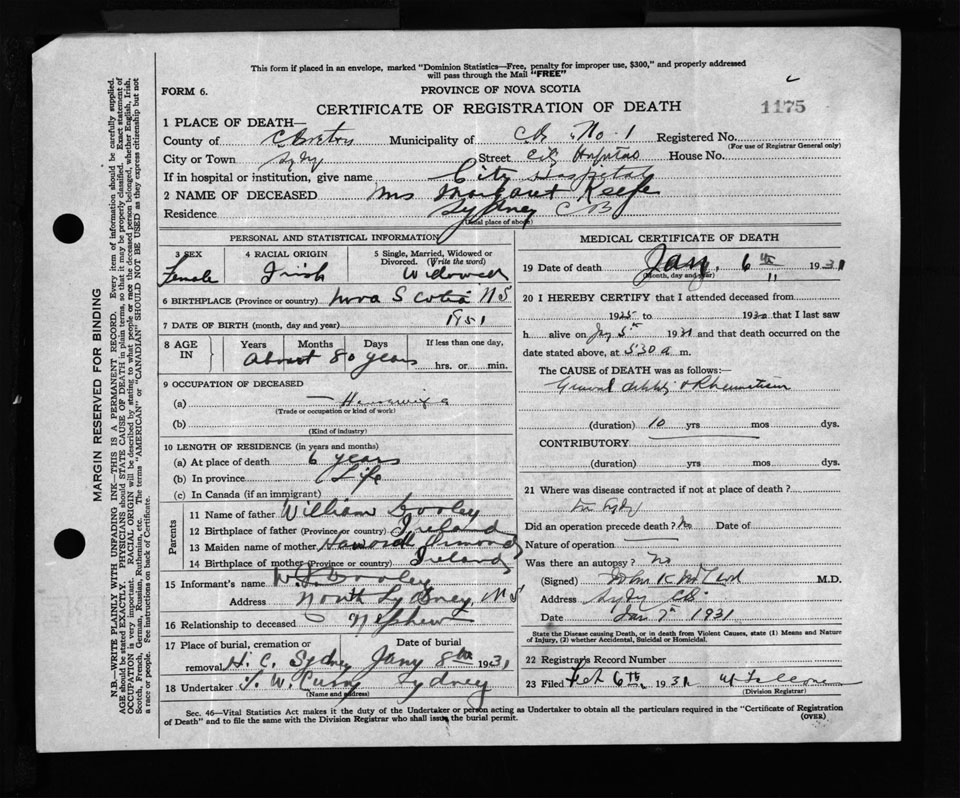 This form if placed in an envelope, marked "Dominion Statistics—Free, penalty for improper use, $300," and properly addressed
will pass through the Mail "FREE"
FORM 6.
PROVINCE OF NOVA SCOTIA
CERTIFICATE OF REGISTRATION OF DEATH
1175
1 PLACE OF DEATH—
County of C Breton Municipality of CB No. 1 Registered No.
(For use of Registrar General only)
City or Town Sydy Street City Hospital House No.
If in hospital or institution, give name City Hospital
2 NAME OF DECEASED Mrs Margaret Keefe
Residence Sydney CB
(Usual place of abode)
PERSONAL AND STATISTICAL INFORMATION
3 SEX 4 RACIAL ORIGIN 5 Single, Married, Widowed or
Divorced. (Write the word)
Female Irish Widowed
6 BIRTHPLACE (Province or country) Nova Scotia NS
7 DATE OF BIRTH (month, day and year) 1851
8 AGE IN Years Months Days If less than one day,
About 80 years
hrs. or min.
9 OCCUPATION OF DECEASED
(a) Housewife
(Trade or occupation or kind of work)
(b)
(Kind of industry)
10 LENGTH OF RESIDENCE (in years and months)
(a) At place of death 6 years
(b) In province Life
(c) In Canada (if an immigrant)
Parents
11 Name of father William Dooley
12 Birthplace of father (Province or country) Ireland
13 Maiden name of mother
14 Birthplace of mother (Province or country) Ireland
15 Informant's name Dooley
Address North Sydney, NS
16 Relationship to deceased Nephew
17 Place of burial, cremation or Date of burial
removal H. C. Sydney Jany 8th 1931
18 Undertaker T. W. Curry Sydney
(Name and address)
MEDICAL CERTIFICATE OF DEATH
19 Date of death Jany. 6th 1931
(Month, day and year) 11
20 I HEREBY CERTIFY that I attended deceased from
1925 to 1930 that I last saw
h alive on Jay 5th 1931 and that death occurred on the
date stated above, at 5 30 a m.
The CAUSE of DEATH was as follows:
General debility & Rheumatism
(duration) 10 yrs mos dys.
CONTRIBUTORY
(duration) yrs mos dys.
21 Where was disease contracted if not at place of death?
Sydy
Did an operation precede death? No Date of
Nature of operation
Was there an autopsy? No
(Signed) John K. McLeod M.D.
Address Sydy CB.
Date Jan 7th 1931
State the Disease causing Death, or in death from Violent Causes, state (1) Means and Nature
of Injury, (2) whether Accidental, Suicidal or Homicidal.
22 Registrar's Record Number
23 Filed Feb 6th 1931
(Division Registrar)
Sec. 46—Vital Statistics Act makes it the duty of the Undertaker or person acting as Undertaker to obtain all the particulars required in the "Certificate of Registration
of Death" and to file the same with the Division Registrar who shall issue the burial permit.
(OVER)
MARGIN RESERVED FOR BINDING
N.B.—WRITE PLAINLY WITH UNFADING INK—THIS IS A PERMANENT RECORD. Every item of information should be carefully supplied.
AGE should be stated EXACTLY. PHYSICIANS should STATE CAUSE OF DEATH in plain terms, so that it may be properly classified. Exact statement of
OCCUPATION is very important. RACIAL ORIGIN will be described by stating to what people or race the deceased person belonged, whether English, Irish,
Scotch, French, German, Russian, Ruthenian, etc. The terms "AMERICAN" or "CANADIAN" SHOULD NOT BE USED as they express citizenship but not
a race or people. See instructions on back of Certificate.